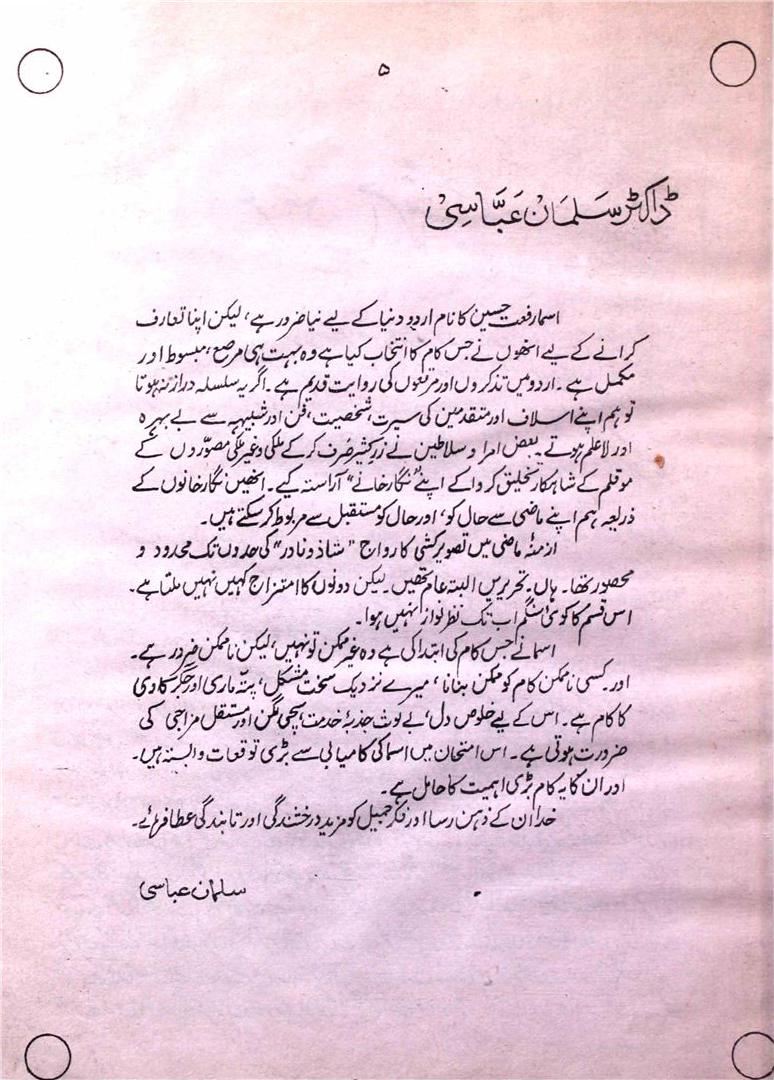 ۵
ڈاکٹر سَلمَان عَبَّاسِی
اسما رفعت حسین کا نام اردو دنیا کے لیے نیا ضرور ہے، لیکن اپنا تعارف
کرانے کے لیے انھوں نے جس کام کا انتخاب کیا ہے وہ بہت ہی مرصع، مبسوط اور
مکمل ہے۔ اردو میں تذکروں اور مرقعوں کی روایت قدیم ہے۔ اگر یہ سلسلہ دراز نہ ہوتا
تو ہم اپنے اسلاف اور متقدمین کی سیرت، شخصیت، فن اور شبیہہ سے بے بہرہ
اور لاعلم ہوتے۔ بعض امرا و سلاطین نے زرِ کثیر صَرف کر کے ملکی و غیر ملکی مصوّروں کے
موقلم کے شاہکار تخلیق کروا کے اپنے "نگار خانے" آراستہ کیے۔ انھیں نگار خانوں کے
ذریعہ ہم اپنے ماضی سے حال کو، اور حال کو مستقبل سے مربوط کر سکتے ہیں۔
ازمنۂ ماضی میں تصویر کشی کا رواج "شاذ و نادر" کی حدوں تک محدود و
محصور تھا۔ ہاں۔ تحریریں البتہ عام تھیں۔ لیکن دونوں کا امتزاج کہیں نہیں ملتا ہے۔
اس قسم کا کوئی سنگم اب تک نظر نواز نہیں ہوا۔
اسما نے جس کام کی ابتدا کی ہے وہ غیر ممکن تو نہیں، لیکن نا ممکن ضرور ہے۔
اور کسی نا ممکن کام کو ممکن بنانا، میرے نزدیک سخت مشکل، پتّہ ماری اور جگر کاوی
کا کام ہے۔ اس کے لیے خلوص دل، بے لوث جذبۂ خدمت، سچی لگن اور مستقل مزاجی کی
ضرورت ہوتی ہے۔ اس امتحان میں اسما کی کامیابی سے بڑی توقعات وابستہ ہیں۔
اور ان کا یہ کام بڑی اہمیت کا حامل ہے۔
خدا ان کے ذہن رسا اور فکر جمیل کو مزید درخشندگی اور تابندگی عطا فرمائے۔
سلمان عباسی